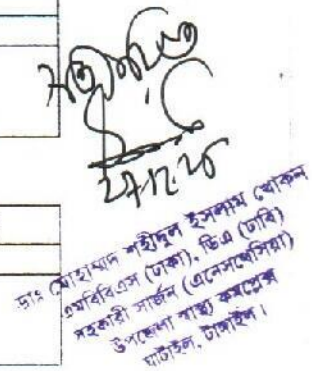 সত্যায়িত
ডাঃ মোহাম্মদ শহীদুল ইসলাম খোকন
এমবিবিএস (ঢাকা), ডিএ (ঢাবি)
সহকারী সার্জন (এনেসথেসিয়া)
উপজেলা স্বাস্থ্য কমপ্লেক্স
ঘাটাইল, টাঙ্গাইল।